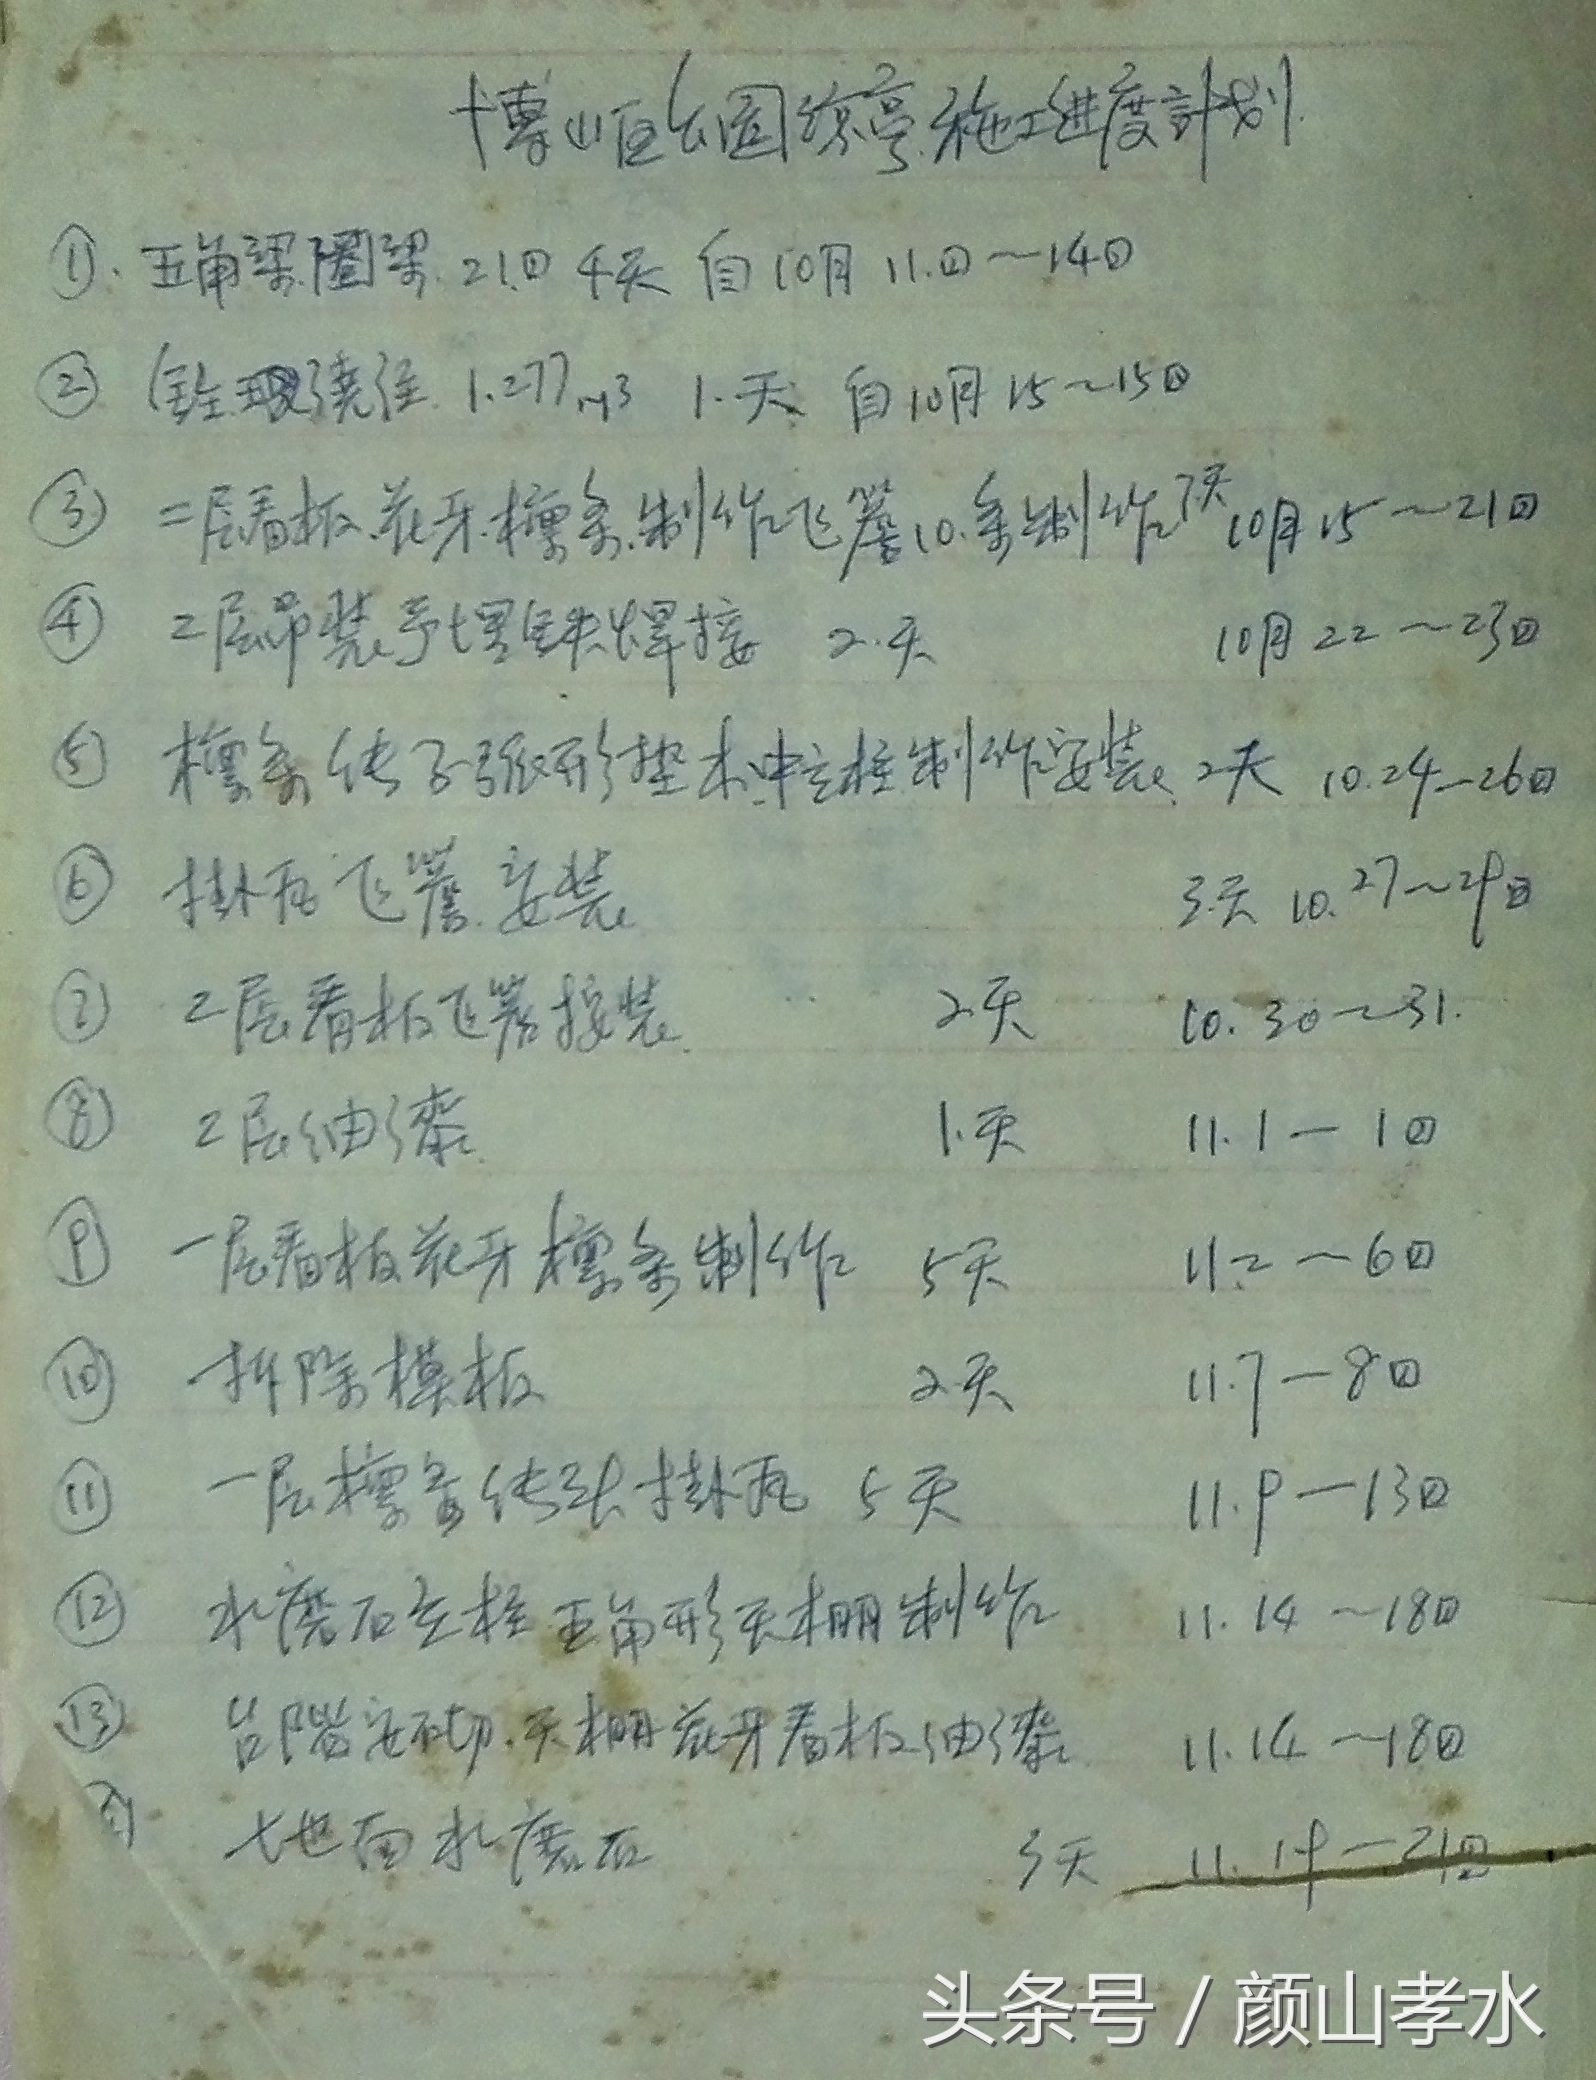 博山区公园综亭施工进度計划
① 五角梁圈梁 21日 4天 自10月11日～14日
② 砼 浇注 1.277m3 1.天 自10月15～15日
③ 二层看板.花牙.檩条.制作飞簷10.条制作7天 10月15～21日
④ 二层吊装予埋鉄焊接 2.天 10月22～23日
⑤ 檩条 子弧形垫木中立柱制作安装 2天 10.24—26日
⑥ 掛瓦飞簷.安装 3.天 10.27～29日
⑦ 二层看板飞簷接装 2天 10.30～31.
⑧ 二层油漆 1.天 11.1—1日
⑨ 一层看板花牙檩条制作 5天 11.2～6日
⑩ 拆除模板 2天 11.7—8日
⑪ 一层檩条 掛瓦 5天 11.9—13日
⑫ 水磨石立柱五角形天棚制作 11.14～18日
⑬ 台階安砌.天棚花牙看板油漆 11.14～18日
地面水磨石 3天 11.19—21日
头条号 / 颜山孝水